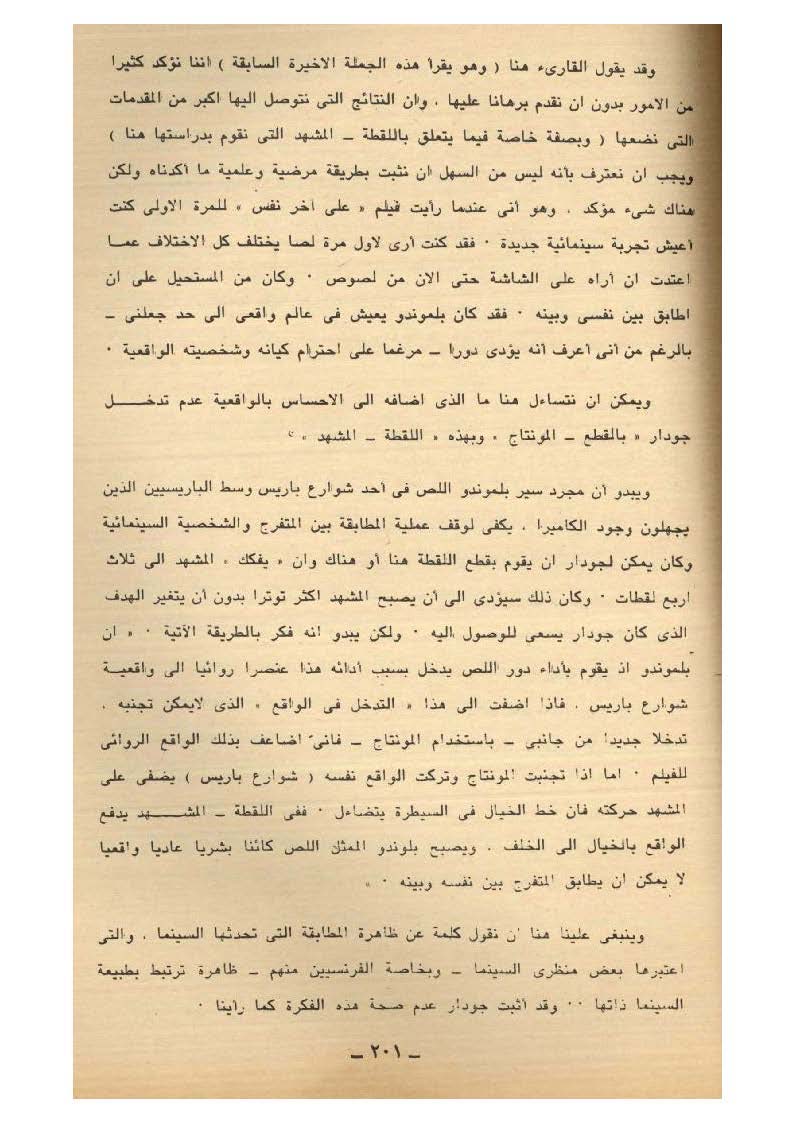 وقد يقول القارىء هنا ( وهو يقرأ هذه الجملة الاخيرة السابقة ) اننا نؤكد كثيرا
من الامور بدون ان نقدم برهانا عليها ، وان النتائج التى نتوصل اليها اكبر من المقدمات
التى نضعها ( وبصفة خاصة فيما يتعلق باللقطة ــ المشهد التى نقوم بدراستها هنا )
ويجب ان نعترف بأنه ليس من السهل ان نثبت بطريقة مرضية وعلمية ما أكدناه ولكن
هناك شىء مؤكد ، وهو أنى عندما رأيت فيلم « على آخر نفس » للمرة الاولى كنت
أعيش تجربة سينمائية جديدة ٠ فقد كنت أرى لاول مرة لصا يختلف كل الاختلاف عمــا
اعتدت ان أراه على الشاشة حتى الان من لصوص ٠ وكان من المستحيل على ان
اطابق بين نفسى وبينه ٠ فقد كان بلموندو يعيش فى عالم واقعى الى حد جعلنى ــ
بالرغم من أنى أعرف أنه يؤدى دورا ــ مرغما على احترام كيانه وشخصيته الواقعية ٠
ويمكن ان نتساءل هنا ما الذى اضافه الى الاحساس بالواقعية عدم تدخـــــل
جودار « بالقطع ــ المونتاج » وبهذه « اللقطة ــ المشهد » ؟
ويبدو أن مجرد سير بلموندو اللص فى أحد شوارع باريس وسط الباريسيين الذين
يجهلون وجود الكاميرا ، يكفى لوقف عملية المطابقة بين المتفرج والشخصية السينمائية
وكان يمكن لجودار ان يقوم بقطع اللقطة هنا أو هناك وان « يفكك » المشهد الى ثلاث
اربع لقطات ٠ وكان ذلك سيؤدى الى أن يصبح المشهد اكثر توترا بدون أن يتغير الهدف
الذى كان جودار يسعى للوصول اليه ٠ ولكن يبدو انه فكر بالطريقة الآتية ٠ « ان
بلموندو اذ يقوم بأداء دور اللص يدخل بسبب أدائه هذا عنصرا روائيا الى واقعيــة
شوارع باريس ، فاذا اضفت الى هذا « التدخل فى الواقع » الذى لايمكن تجنبه ،
تدخلا جديدا من جانبى ــ باستخدام المونتاج ــ فانى اضاعف بذلك الواقع الروائى
للفيلم ٠ اما اذا تجنبت المونتاج وتركت الواقع نفسه ( شوارع باريس ) يضفى على
المشهد حركته فان خط الخيال فى السيطرة يتضاءل ٠ ففى اللقطة ــ المشـــهد يدفع
الواقع بالخيال الى الخلف ، ويصبح بلوندو الممثل اللص كائنا بشريا عاديا واقعيا
لا يمكن ان يطابق المتفرج بين نفسه وبينه ٠ »
وينبغى علينا هنا أن نقول كلمة عن ظاهرة المطابقة التى تحدثها السينما ، والتى
اعتبرها بعض منظرى السينما ــ وبخاصة الفرنسيين منهم ــ ظاهرة ترتبط بطبيعة
السينما ذاتها ٠٠ وقد أثبت جودار عدم صحة هذه الفكرة كما رأينا ٠
ــ ٢٠١ ــ